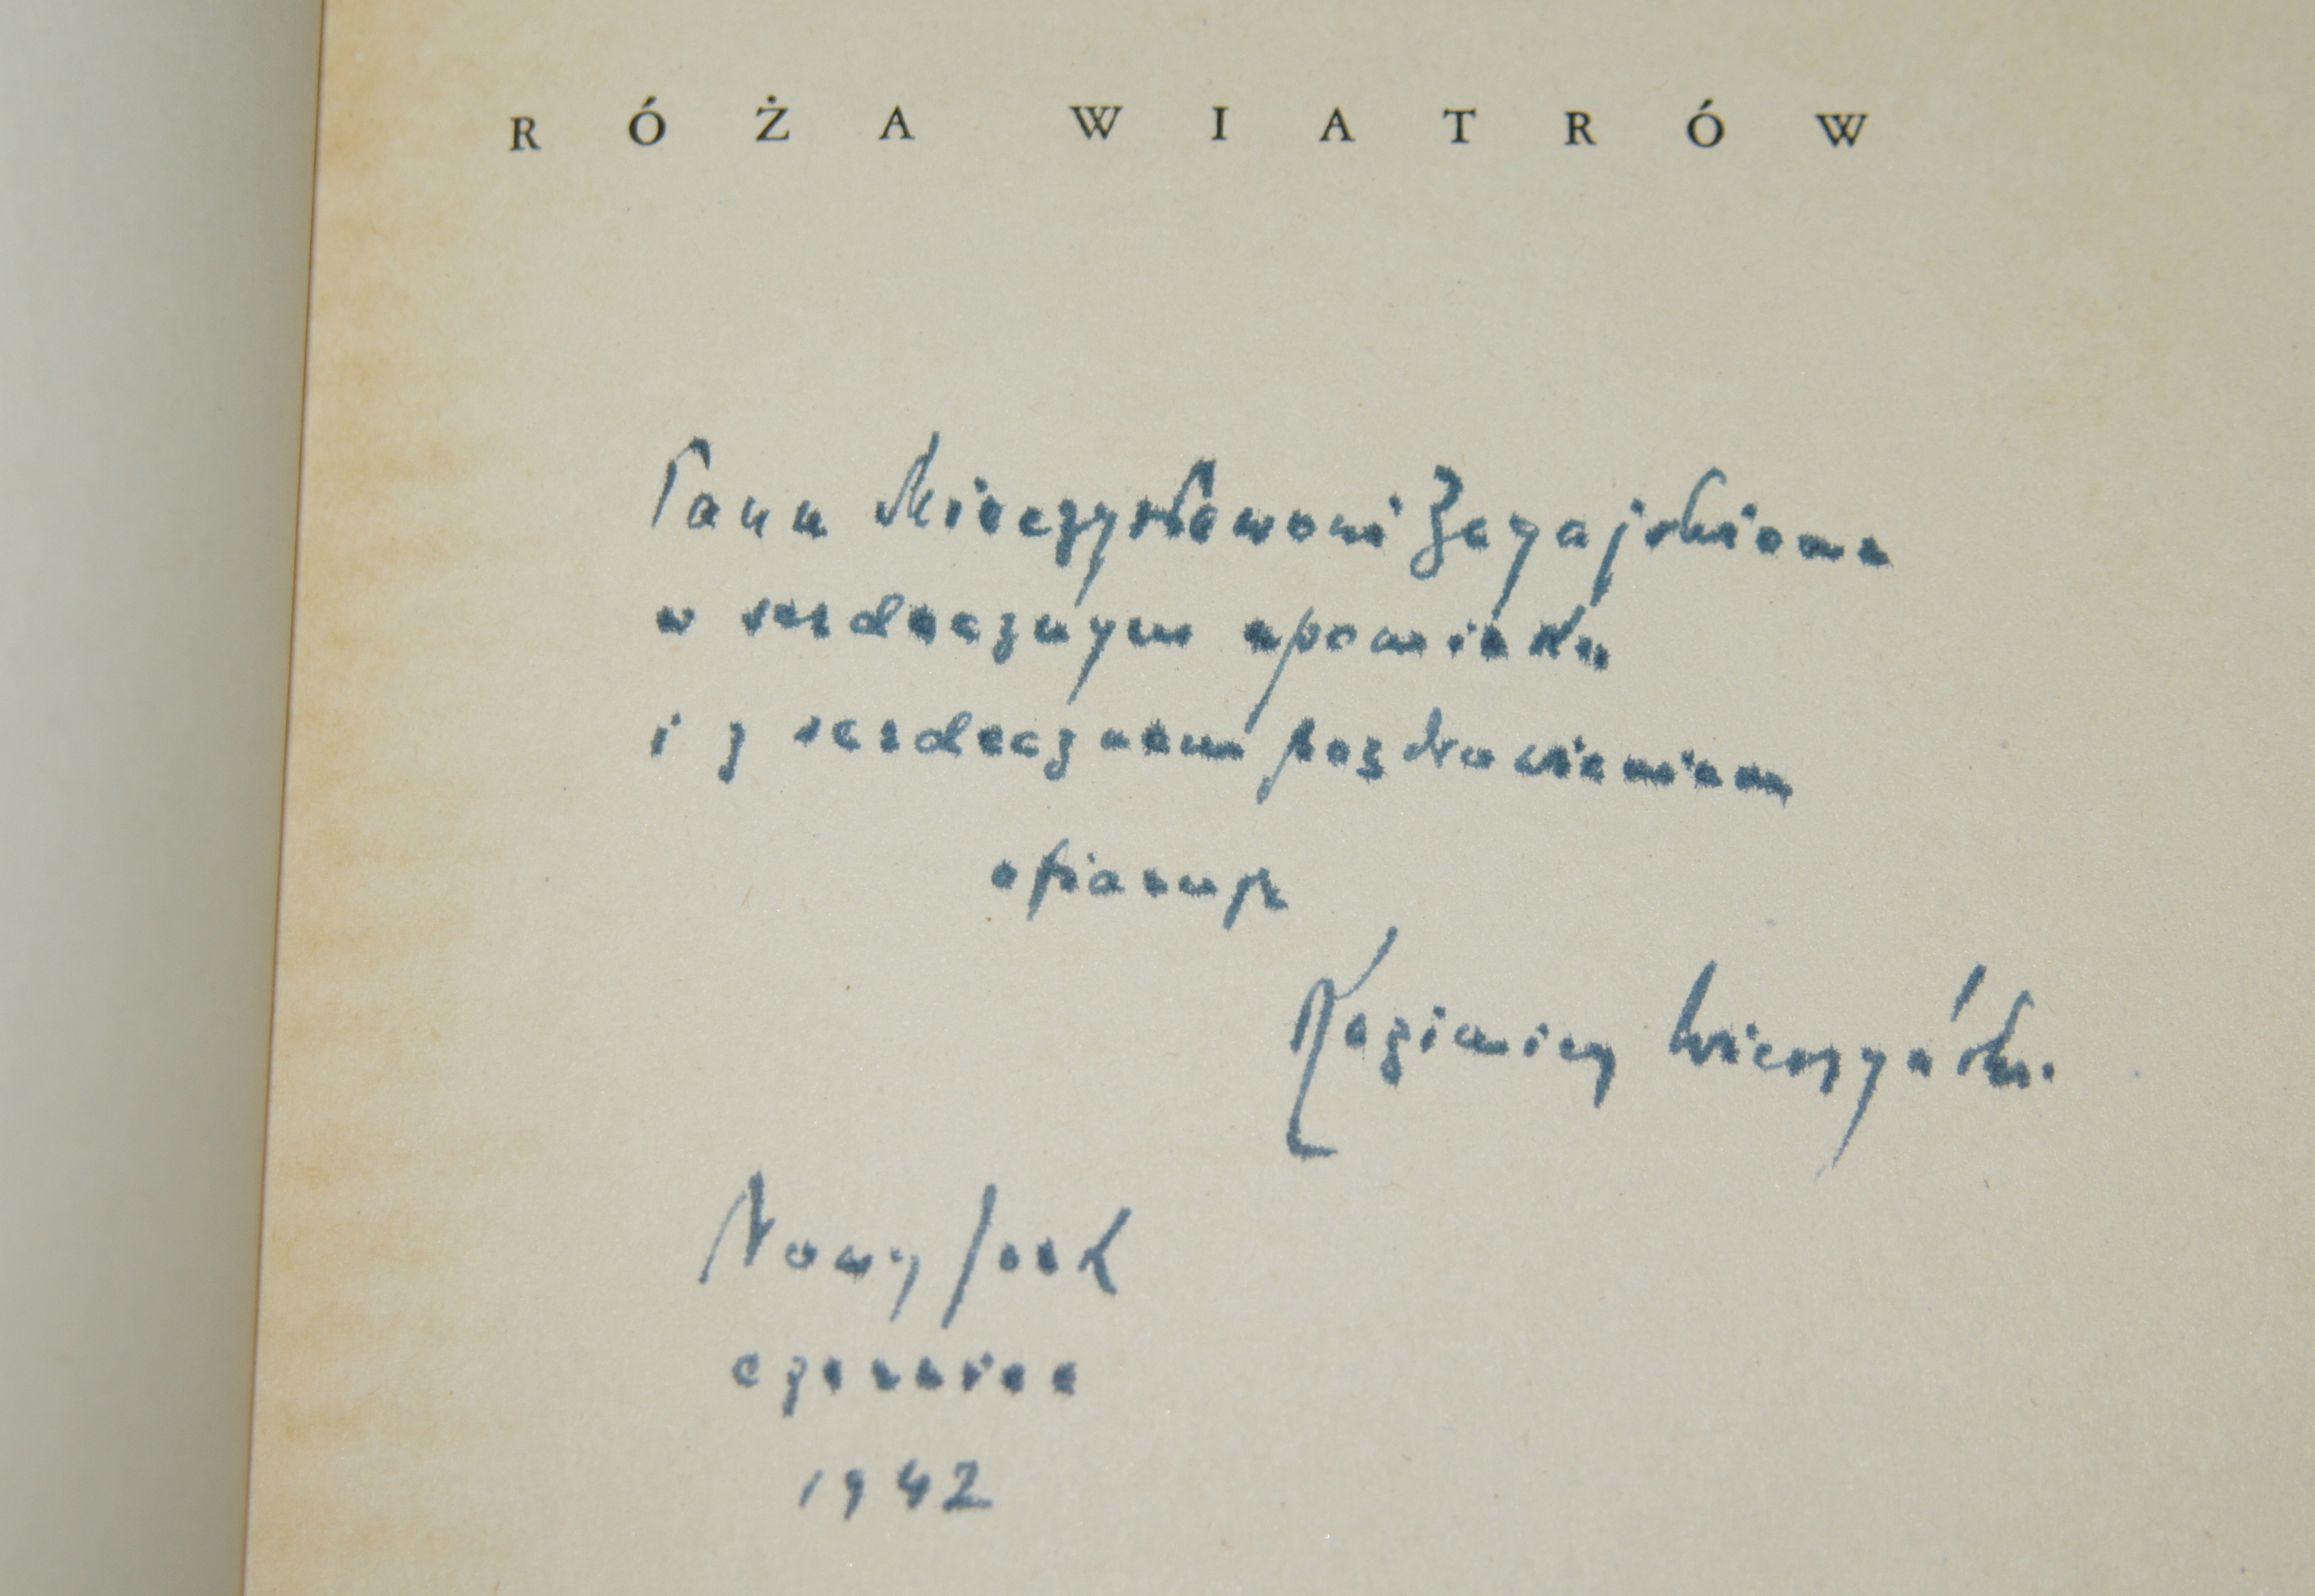 RÓŻA WIATRÓW
Panu Mieczysławowi Zagajskiemu
w serdecznym upominku
i z serdecznem pozdrowieniem
ofiaruję
Kazimierz Wierzyński
Nowy Jork
czerwiec
1942